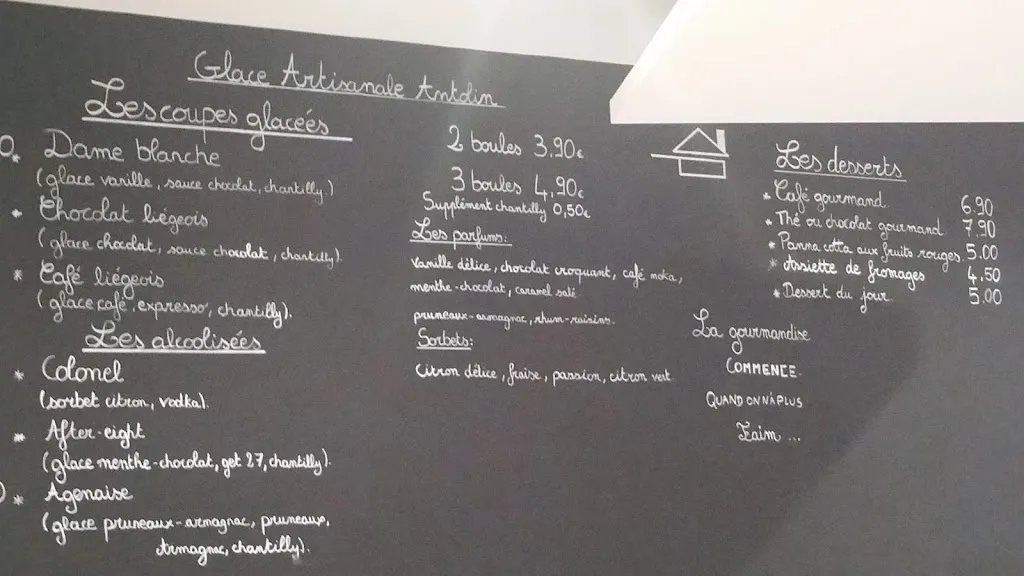 Glace Artisanale Antolin
Les coupes glacées
* Dame blanche
(glace vanille, sauce chocolat, chantilly)
* Chocolat liégeois
(glace chocolat, sauce chocolat, chantilly).
* Café liégeois
(glace café, expresso, chantilly).
Les alcoolisées
* Colonel
(sorbet citron, vodka).
* After-eight
(glace menthe-chocolat, get 27, chantilly).
* Agenaise
(glace pruneaux-armagnac, pruneaux,
Armagnac, chantilly).
2 boules 3,90€
3 boules 4,90€
Supplément chantilly 0,50€
Les parfums:
Vanille délice, chocolat croquant, café moka,
menthe-chocolat, caramel salé
pruneaux-armagnac, rhum-raisins.
Sorbets:
Citron délice, fraise, passion, citron vert
Les desserts
* Café gourmand 6.90
* Thé ou chocolat gourmand 7.90
* Panna cotta aux fruits rouges 5.00
* Assiette de fromages 4,50
* Dessert du jour 5.00
La gourmandise
COMMENCE
QUAND ON N'A PLUS
Faim ...